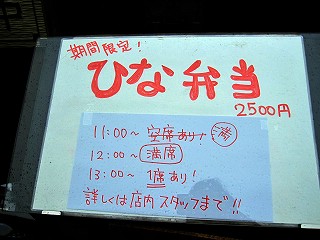 期間限定!
ひな弁当
2500円
11:00〜 空席あり! 満
12:00〜 満席
13:00〜 1席あり!
詳しくは店内スタッフまで!!